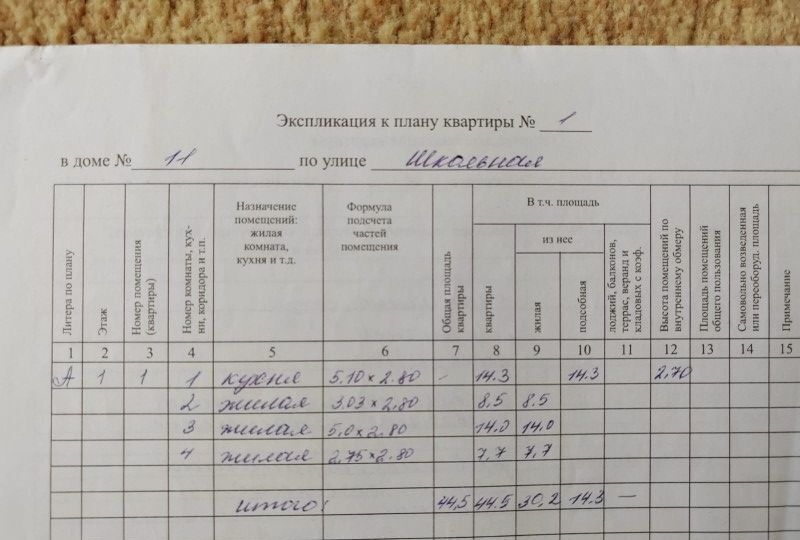 Экспликация к плану квартиры № 1
в доме № 11 по улице Школьная
Литера по плану
Этаж
Номер помещения (квартиры)
Номер комнаты, кух-
ни, коридора и т.п.
Назначение
помещений:
жилая
комната,
кухня и т.д.
Формула
подсчета
частей
помещения
Общая площадь
квартиры
В т.ч. площадь
квартиры
из нее
жилая
подсобная
лоджий, балконов,
террас, веранд и
кладовых с коэф.
Высота помещений по
внутреннему обмеру
Площадь помещений
общего пользования
Самовольно возведенная
или переоборуд. площадь
Примечание
1 2 3 4 5 6 7 8 9 10 11 12 13 14 15
А 1 1 1 кухня 5.10 × 2.80 - 14.3 14.3 2,70
2 жилая 3.03 × 2,80 8,5 8,5
3 жилая 5,0 × 2.80 14,0 14,0
4 жилая 2,75 × 2.80 7,7 7,7
итого: 44,5 44.5 30,2 14.3 —